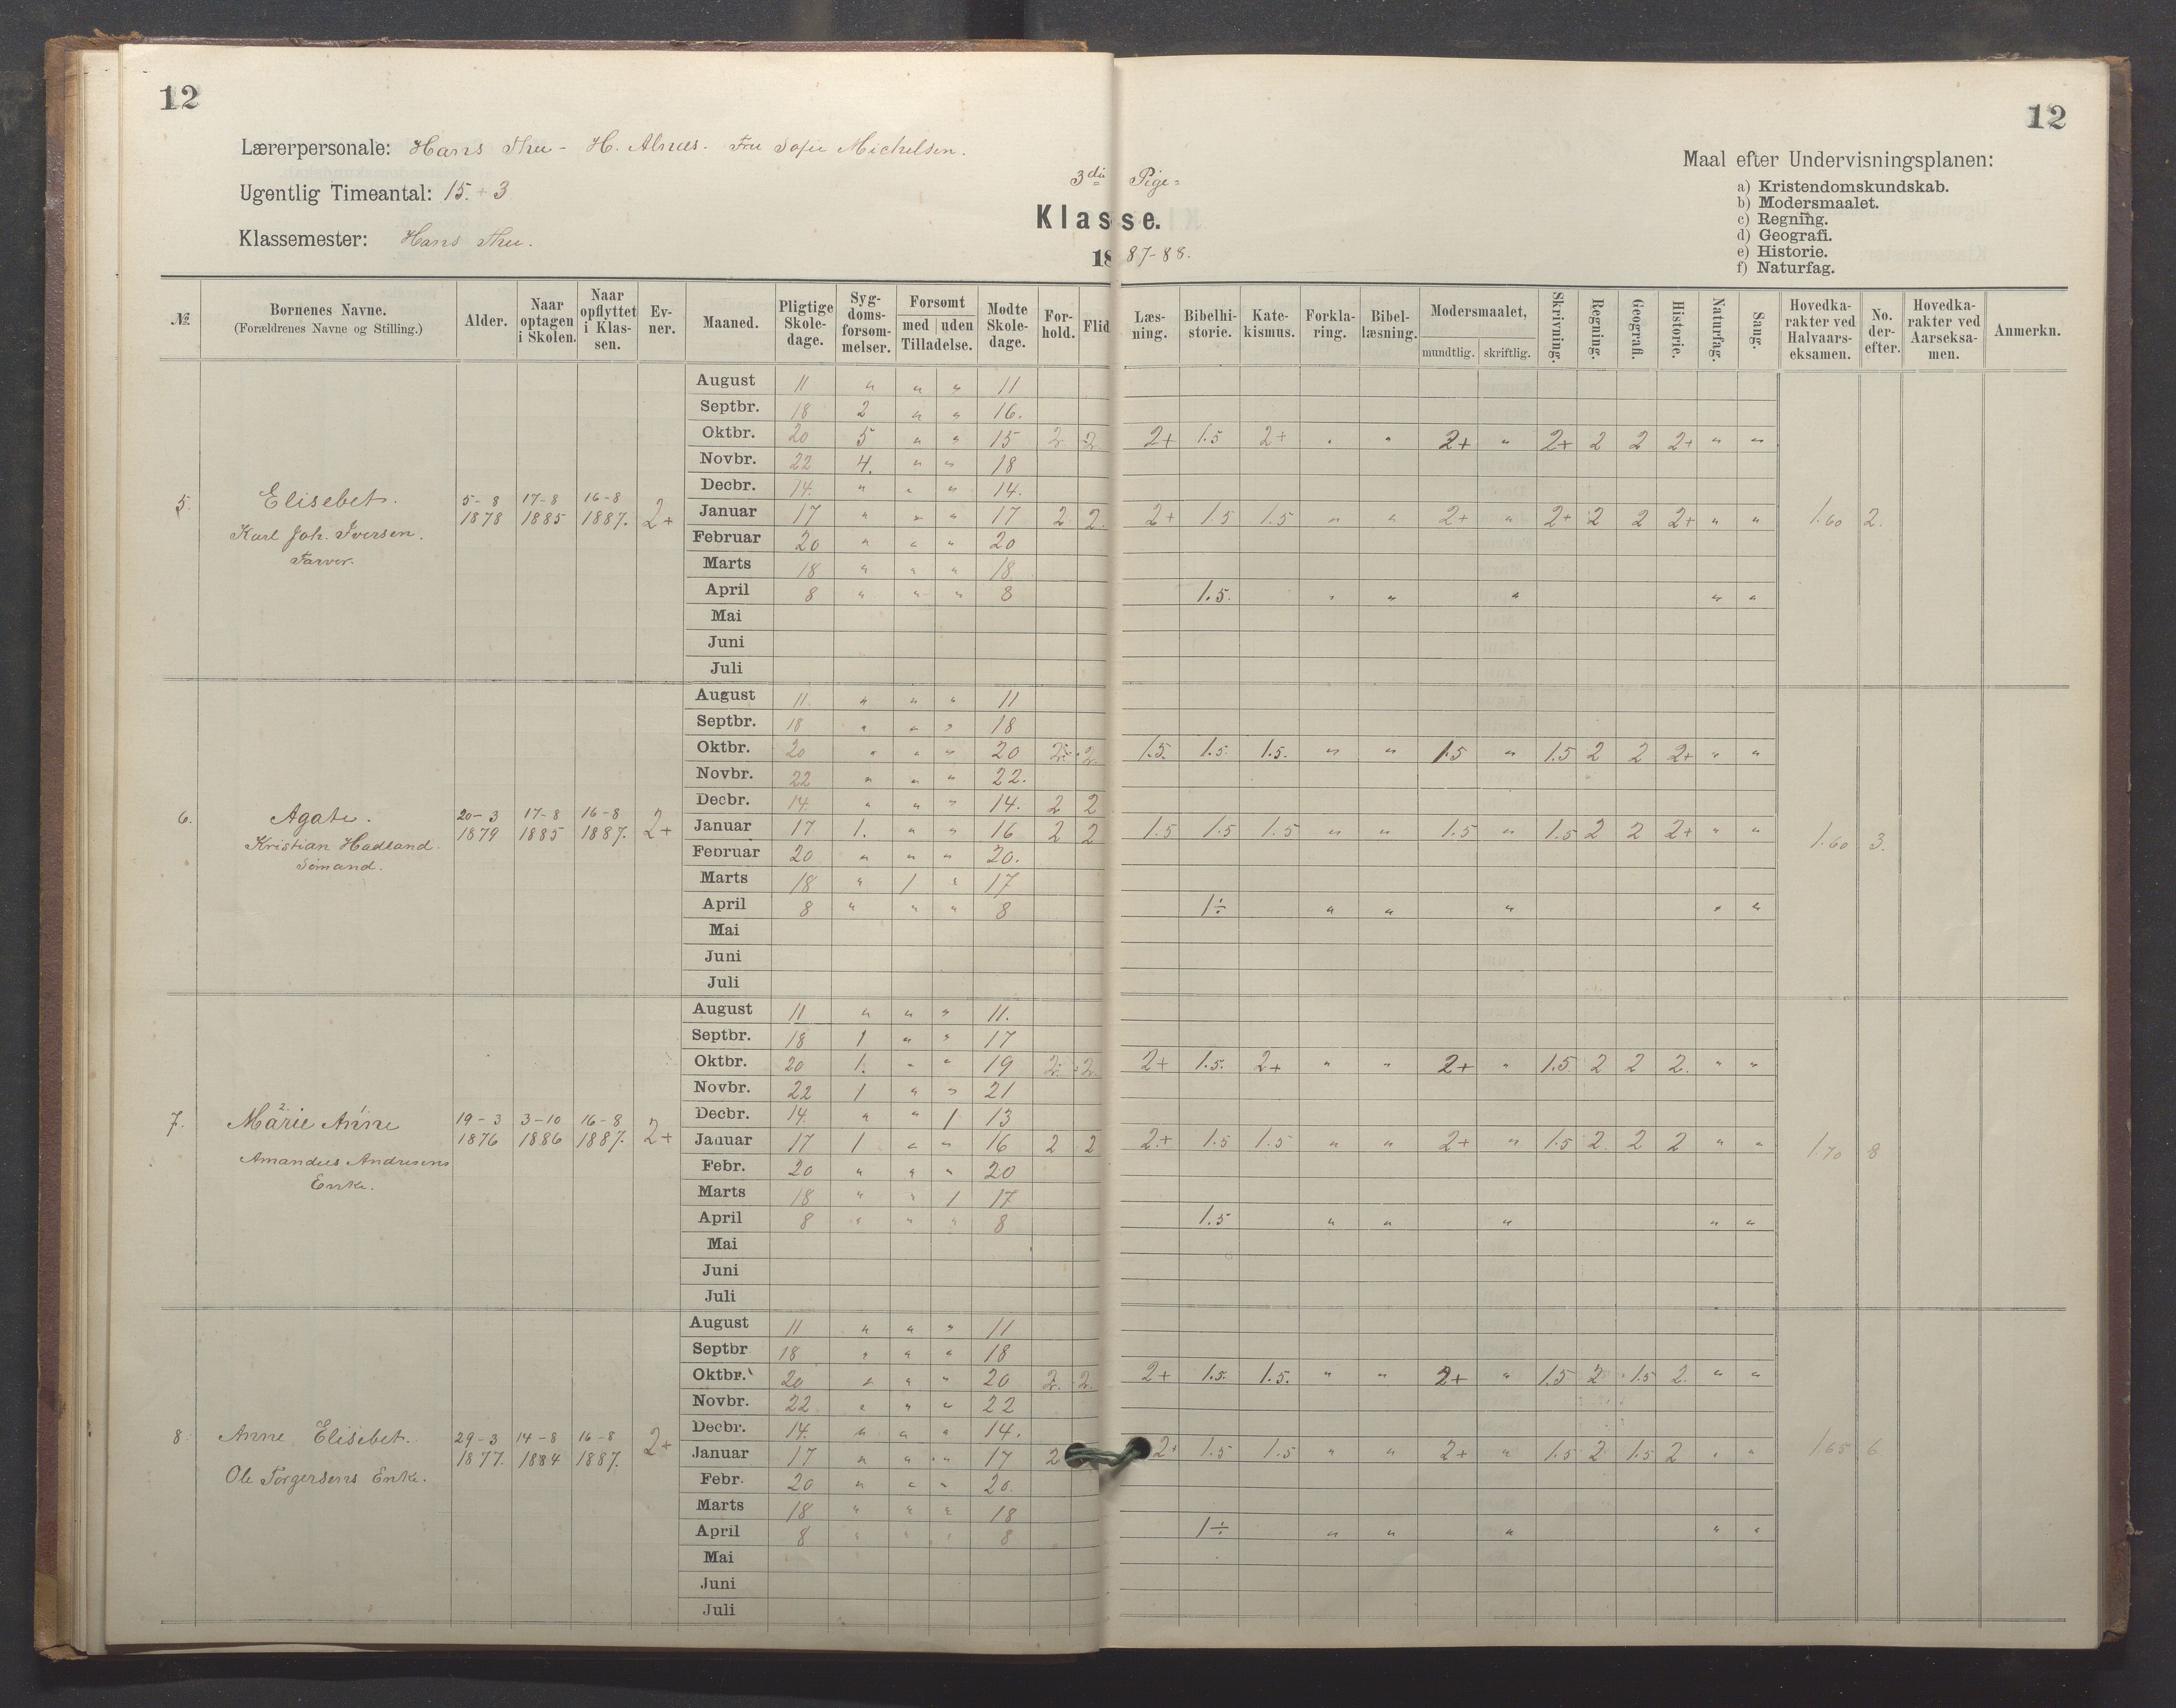 12
12
Lærerpersonale: Hans Thu - H. Alnæs. Fru Sofie Michelsen.
Ugentlig Timeantal: 15. + 3
Klassemester: Hans Thu.
3die Pige=
Klasse.
1887-88.
Maal efter Undervisningsplanen:
a) Kristendomskundskab.
b) Modersmaalet.
c) Regning.
d) Geografi.
e) Historie.
f) Naturfag.
№ Børnenes Navne. (Forældrenes Navne og Stilling.) Alder. Naar optagen i Skolen. Naar opflyttet i Klassen. Evner. Maaned. Pligtige Skoledage. Sygdomsforsømmelser. Forsømt med | uden Tilladelse. Mødte Skoledage. Forhold. Flid Læsning. Bibelhistorie. Katekismus. Forklaring. Bibellæsning. Modersmaalet, mundtlig. skriftlig. Skrivning. Regning. Geografi. Historie. Naturfag. Sang. Hovedkarakter ved Halvaarseksamen. No. derefter. Hovedkarakter ved Aarseksamen. Anmerkn.
5. Elisebet. Karl Joh. Iversen. Farver. 5-8 1878 17-8 1885 16-8 1887. 2+ 1.60 2.
August 11 " " " 11
Septbr. 18 2 " " 16.
Oktbr. 20 5 " " 15 2 2 2+ 1.5 2+ " " 2+ " 2+ 2 2 2+ " "
Novbr. 22 4. " " 18
Decbr. 14. " " " 14.
Januar 17 " " " 17 2 2. 2+ 1.5 1.5 " " 2+ " 2+ 2 2 2+ " "
Februar 20 " " " 20
Marts 18 " " " 18
April 8 " " " 8 1.5. " " " " "
Mai
Juni
Juli
6. Agate. Kristian Hadland. Sömand. 20-3 1879 17-8 1885 16-8 1887. 2+ 1.60 3.
August 11. " " " 11
Septbr. 18 " " " 18
Oktbr. 20 " " " 20 2. 2. 1.5. 1.5. 1.5. " " 1.5 " 1.5 2 2 2+ " "
Novbr. 22 " " " 22.
Decbr. 14. " " " 14. 2 2
Januar 17 1. " " 16 2 2 1.5 1.5 1.5 " " 1.5 " 1.5 2 2 2+ " "
Februar 20 " " " 20.
Marts 18 " 1 " 17
April 8 " " " 8 1÷ " " " " "
Mai
Juni
Juli
7. Marie Anne 2. 1. Amandus Andresens Enke. 19-3 1876 3-10 1886 16-8 1887. 2+ 1.70 8
August 11 " " " 11.
Septbr. 18 1 " " 17
Oktbr. 20 1. " " 19 2. 2. 2+ 1.5. 2+ " " 2+ " 1.5 2 2 2. " "
Novbr. 22 1 " " 21
Decbr. 14. " " 1 13
Januar 17 1 " " 16 2 2 2+ 1.5 1.5 " " 2+ " 1.5 2. 2 2 " "
Febr. 20 " " " 20
Marts 18 " " 1 17
April 8 " " " 8 1.5 " " " " "
Mai
Juni
Juli
8. Anne Elisebet. Ole Torgersens Enke. 29-3 1877. 14-8 1884 16-8 1887. 2+ 1.65 6
August 11 " " " 11
Septbr 18 " " " 18
Oktbr. 20 " " " 20 2. 2. 2+ 1.5. 1.5. " " 2+ " 1.5 2 1.5 2. " "
Novbr. 22 " " " 22
Decbr. 14. " " " 14.
Januar 17 " " " 17 2 2+ 1.5 1.5 " " 2+ " 1.5 2 1.5 2 " "
Febr. 20 " " " 20.
Marts 18 " " " 18
April 8 " " " 8 1÷ " " " " "
Mai
Juni
Juli